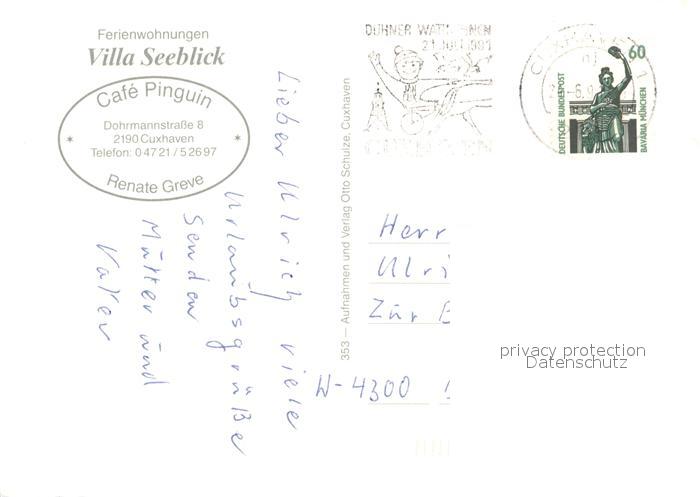 Ferienwohnungen
Villa Seeblick
Café Pinguin
Dohrmannstraße 8
2190 Cuxhaven
Telefon: 0 47 21 / 5 26 97
Renate Greve
Lieber Ulrich viele
Urlaubsgrüße
senden
Mutter und
Vater
353 — Aufnahmen und Verlag Otto Schulze, Cuxhaven
DUHNER
21. JULI 1991
60
DEUTSCHE BUNDESPOST
BAVARIA MÜNCHEN
Herr
Ulri
Zur
W-4300
privacy protection
Datenschutz